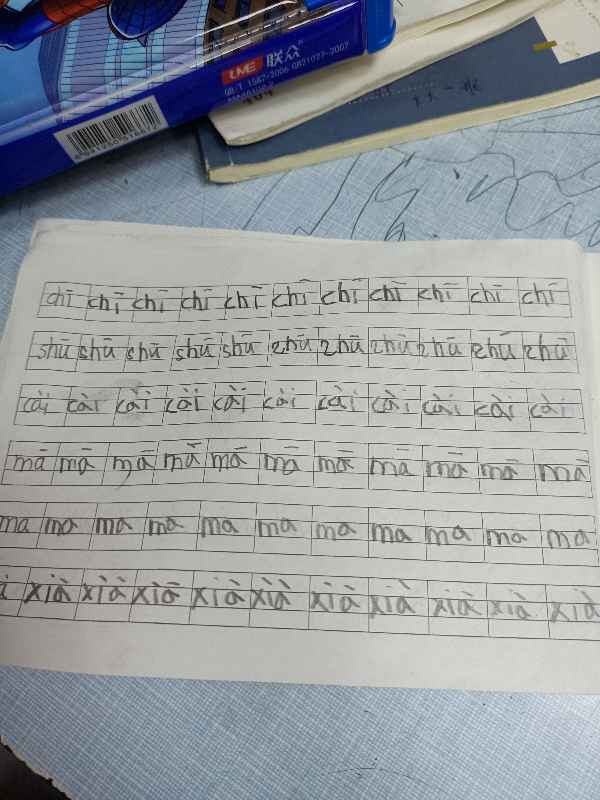 LME 联众
GB/T 1587-2006 GB21027-2007
chī chī chī chī chī chī chī chī chī chī chī
shū shū shū shū shū zhū zhū zhū zhū zhū zhū
cài cài cài cài cài cài cài cài cài cài cài
mā mā mā mā mā mā mā mā mā mā mā
ma ma ma ma ma ma ma ma ma ma ma
xià xià xià xià xià xià xià xià xià xià